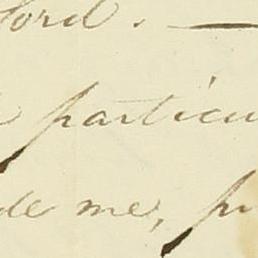 ford. —
particu
de me, pr